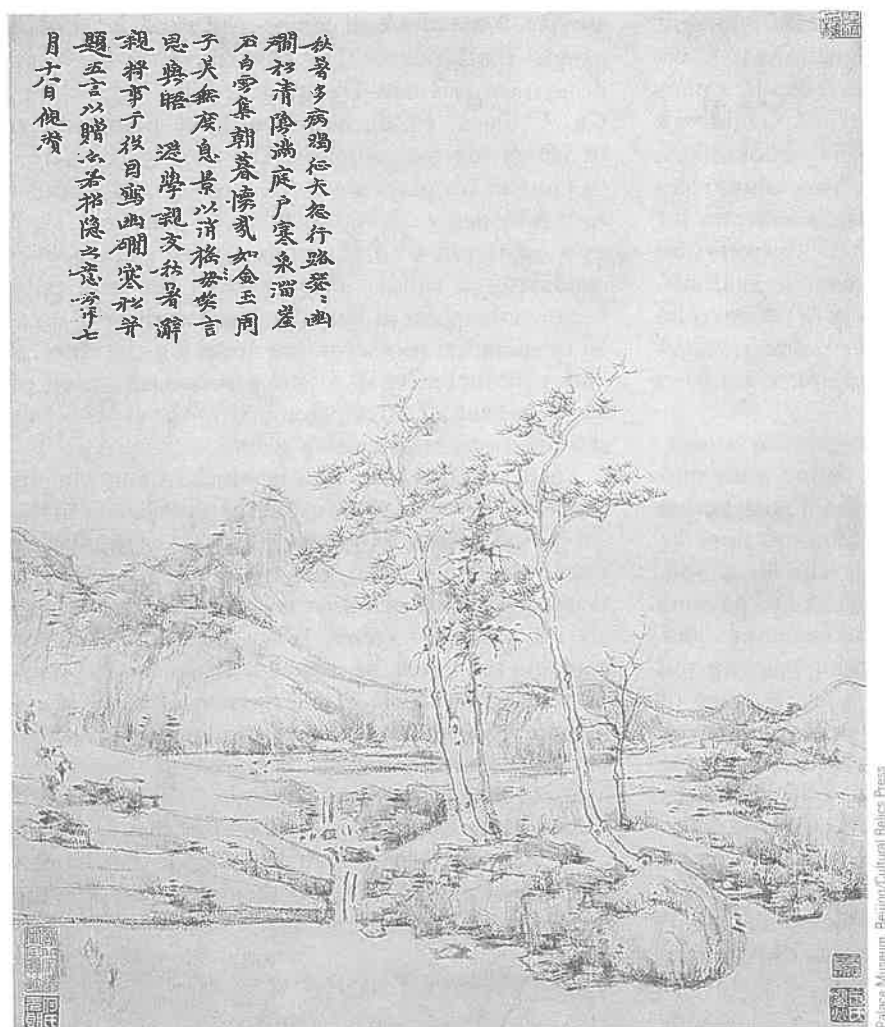 秋暑多病暍征夫怨行路瑟〻幽
磵松清陰滿庭戶寒泉溜崖
石白雲集朝暮懷哉如金玉周
子美無度息景以消搖毋笑言
思與晤 遜學親友秋暑辭
親將事于役因寫幽磵寒松并
題五言以贈亦若招隱之意云耳七
月十八日倪瓚
Palace Museum, Beijing/Cultural Relics Press